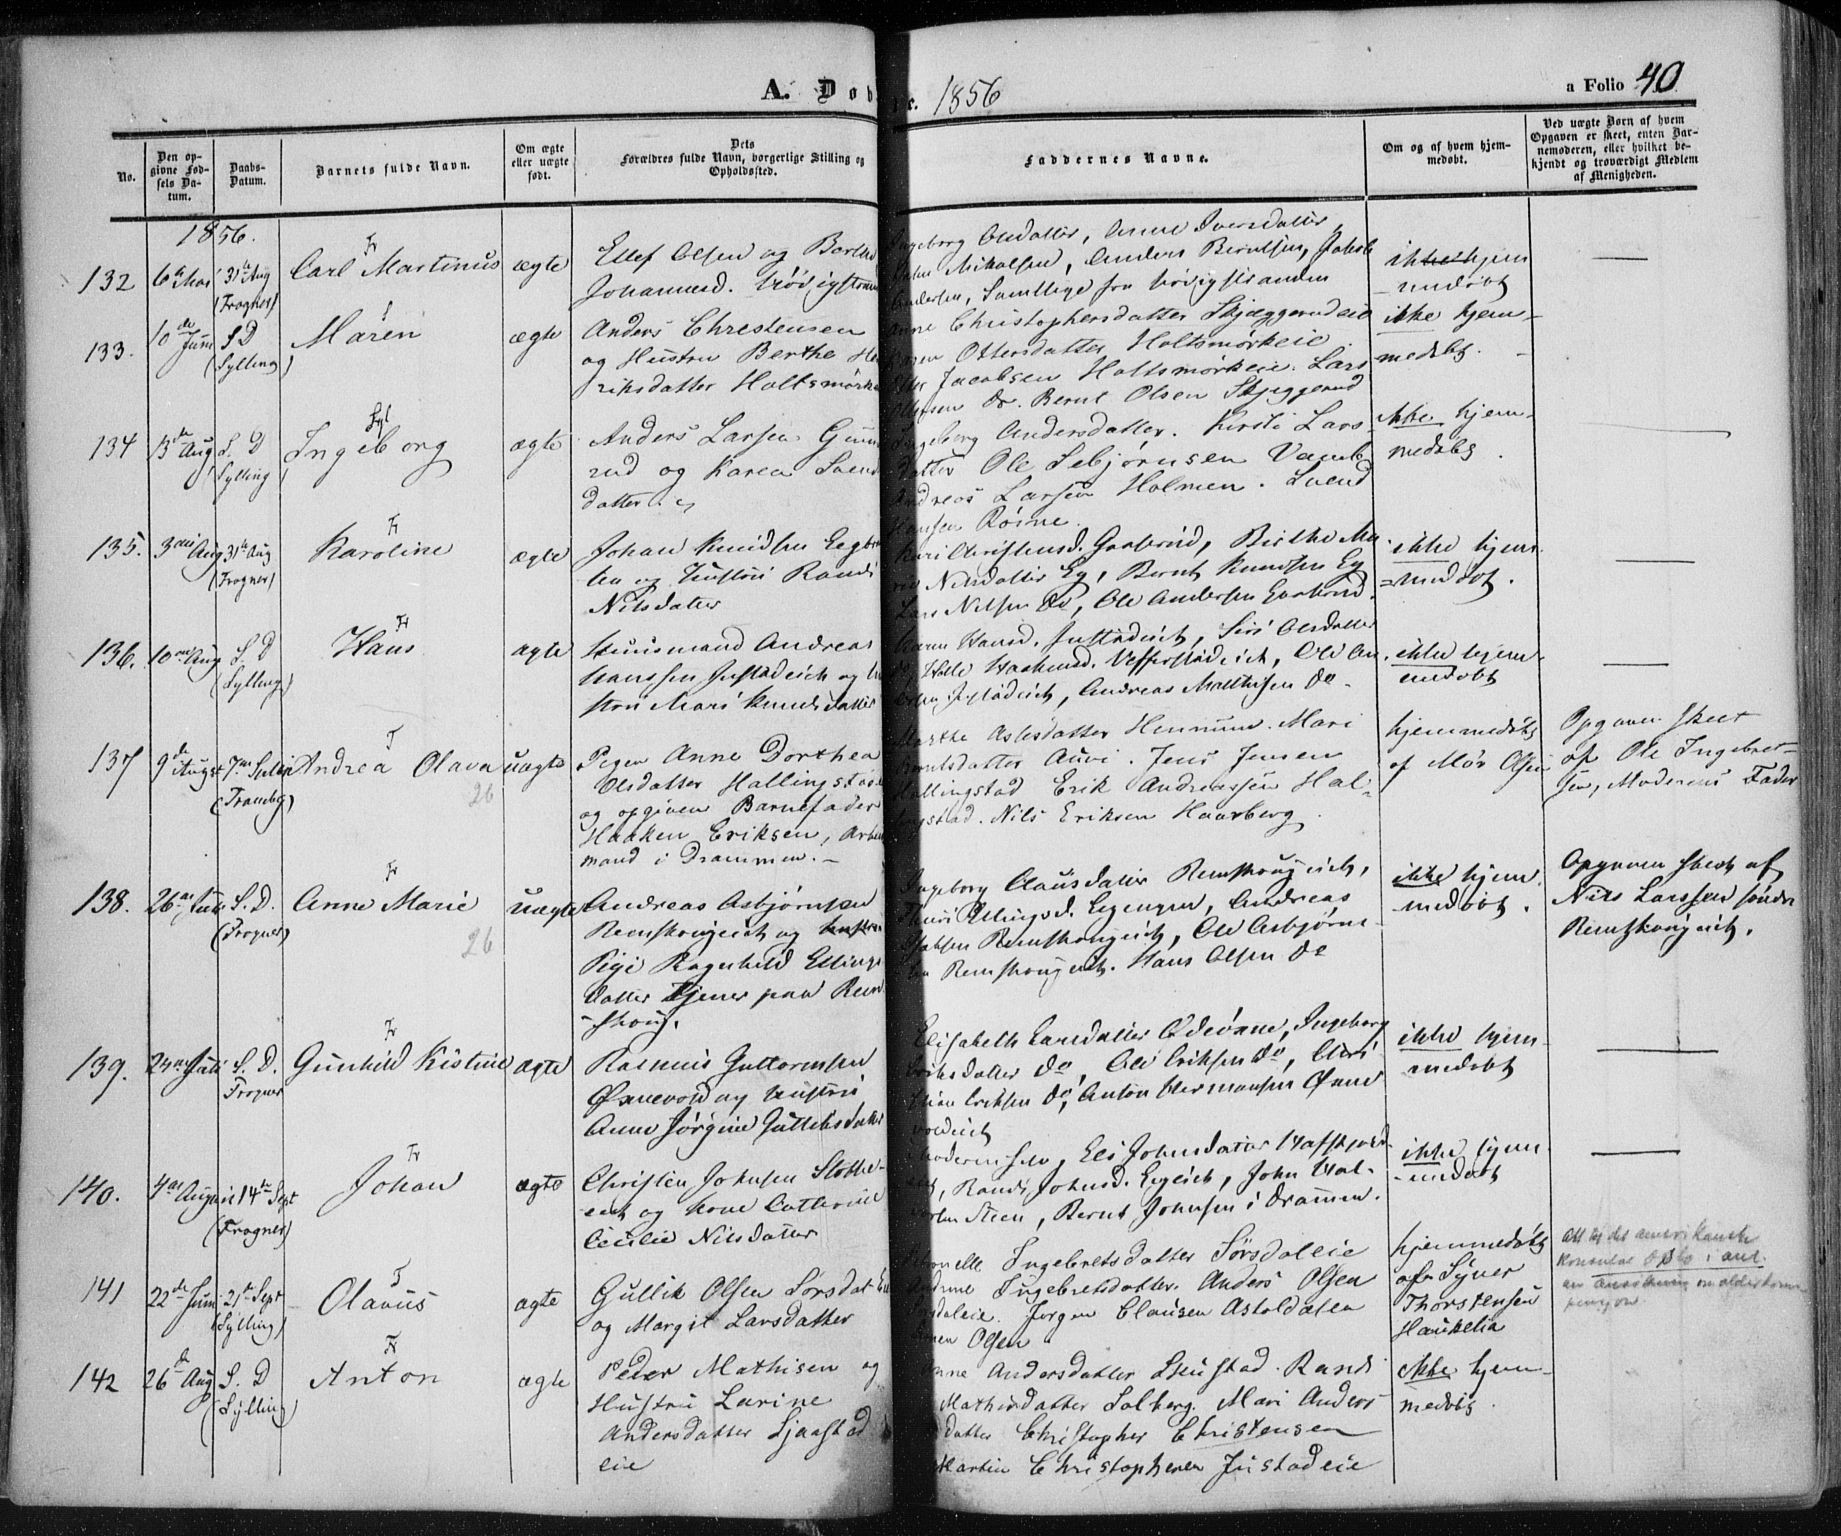 A. Døb e. 1856
a Folio 40
No.
Den op-
givne Fød-
sels Da-
tum.
Daabs-
Datum.
Barnets fulde Navn.
Om ægte
eller uægte
født.
Dets
Forældres fulde Navn, borgerlige Stilling og
Opholdssted.
Faddernes Navne.
Om og af hvem hjem-
medøbt.
Ved uægte Børn af hvem
Opgaven er skeet, enten Bar-
nemoderen, eller hvilket be-
kjendt og troværdigt Medlem
af Menigheden.
1856.
132 6te 31te Aug (Frogner)
Fr
Carl Martinus
ægte
Ellef Olsen og Berthe
Johannesd.
Ingeborg Olsdatter, Anne Iversdatter,
Mikalsen, Anders Berntsen, Jakob
Andersen, Samtlige fra
ikke hjem
-medøbt
133. 10de Juni S D (Sylling)
Maren
ægte
Anders Christensen
og Hustru Berthe He
riksdatter Holtsmørke
Anne Christophersdatter Skjæggerudeie
Karen Ottersdatter Holtsmørkeie
Jacobsen Holtsmørkeie. Lars
do. Bernt Olsen Skjeggerud
ikke hjem-
medøbt.
134 13de Aug S. D (Sylling)
Syl
Ingeborg
ægte
Anders Larsen Gunne
rud og Karen Svens
datter
Ingeborg Andersdatter. Kirsti Lars
datter Ole Sebjørnsen
Andreas Larsen Holmen. Svend
Hansen
ikke hjem-
medøbt.
135. 3die Aug 31te Aug (Frogner)
Fr
Karoline
ægte
Johan Knudsen
og Hustru Randi
Nilsdatter
Kari Christensd. Gaaserud, Birthe Ma-
rie Nilsdatter Eg, Bernt Knudsen Eg
Lars Nilsen do, Ole Andersen Gaaserud.
ikke hjem
=medøbt.
136. 10de Aug S. D (Sylling)
Fr
Hans
ægte
Huusmand Andreas
Hanssen Justadeiet og Hu
stru Mari Knudsdatter
Karen Hansd. Justadeiet, Siri Olsdatter
do, Helle Haakensd. Ole An
Justadeiet, Andreas Matthisen do -
ikke hjem
medøbt
137 9de August 7de Septbr (Tranby)
T
Andrea Olava
26
uægte
Pigen Anne Dorthea
Olsdatter Hallingstad
og opgiven Barnefader
Haaken Eriksen, Arbei
mand i Drammen. -
Marthe Aslesdatter Hennum. Mari
Berntsdatter Auvi. Jens Jensen
Hallingstad Erik Andreassen Hal-
lingstad. Nils Eriksen Haarberg.
hjemmedøbt
af Mor Olsen
Opgaven skeet
af Ole Ingebret-
sen, Moderens Fader
138. 26de Juli S. D. (Frogner)
Fr
Anne Marie
26
uægte
Andreas Asbjørnsen
Remskougeiet og
Pige Ragnhild Ellings
datter tjener paa Rem
-skoug.
Ingeborg Clausdatter Remskougeiet,
Ellingsd. Andreas
Remskougeiet, Ole Asbjørn-
sen Remskougeiet. Hans Olsen do
ikke hjem.
-medøbt.
Opgaven skeet af
Nils Larssen søndre
Remskougeiet.
139. S. D. Frogner
Fr
Gunhild Kistine
ægte
Rasmus Guttormsen
Øxnevold og Hustru
Anne Jørgine Guttelsdatter
Elisabeth Larsdatter Ingeborg
Eriksdatter do, Ole Eriksen do,
Eriksen do, Anton Hermansen Øxne
voldeiet
ikke hjem
medøbt
140. 4de August 14de Sept (Frogner)
Fr
Johan
ægte
Christen Johnsen Slotte-
eiet og Kone Cathrine
Cecilie Nilsdatter
Moderen selv, Eli Johnsdatter
Randi Johnsd. John Hal-
Steen, Bernt Johnsen i Drammen.
ikke hjem
-medøbt
141 22de Juni 21de Sept (Sylling)
T
Olavus
ægte
Gullik Olsen Sørsdal eie
og Margit Larsdatter
Petronelle Ingebretsdatter Sørsdaleie
Ingebretsdatter Anders Olsen
Jørgen Clausen
Olsen
hjemmedøbt
af Syver
Thorstensen
Haukelia
Att til det amerikanske
konsulat Oslo i anl.
av ansøkning om alderdoms
pensjon
142 26de Aug S. D (Sylling)
Fr
Anton
ægte
Peder Mathisen og
Hustru Larine
Andersdatter Sjaastad
eie
Anne Andersdatter Randi
Mathisdatter Solberg. Mari Anders
datter Christopher Christensen
Martin Christophersen Justadeie
ikke hjem-
medøbt.